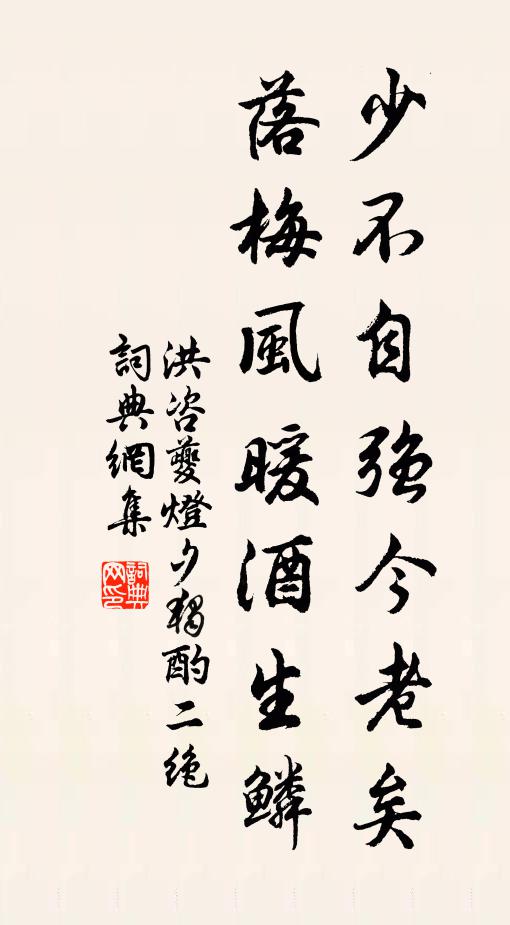 少不自強今老矣
落梅風暖酒生鱗
洪咨夔燈夕獨酌二絶
詞典網集
詞典网印